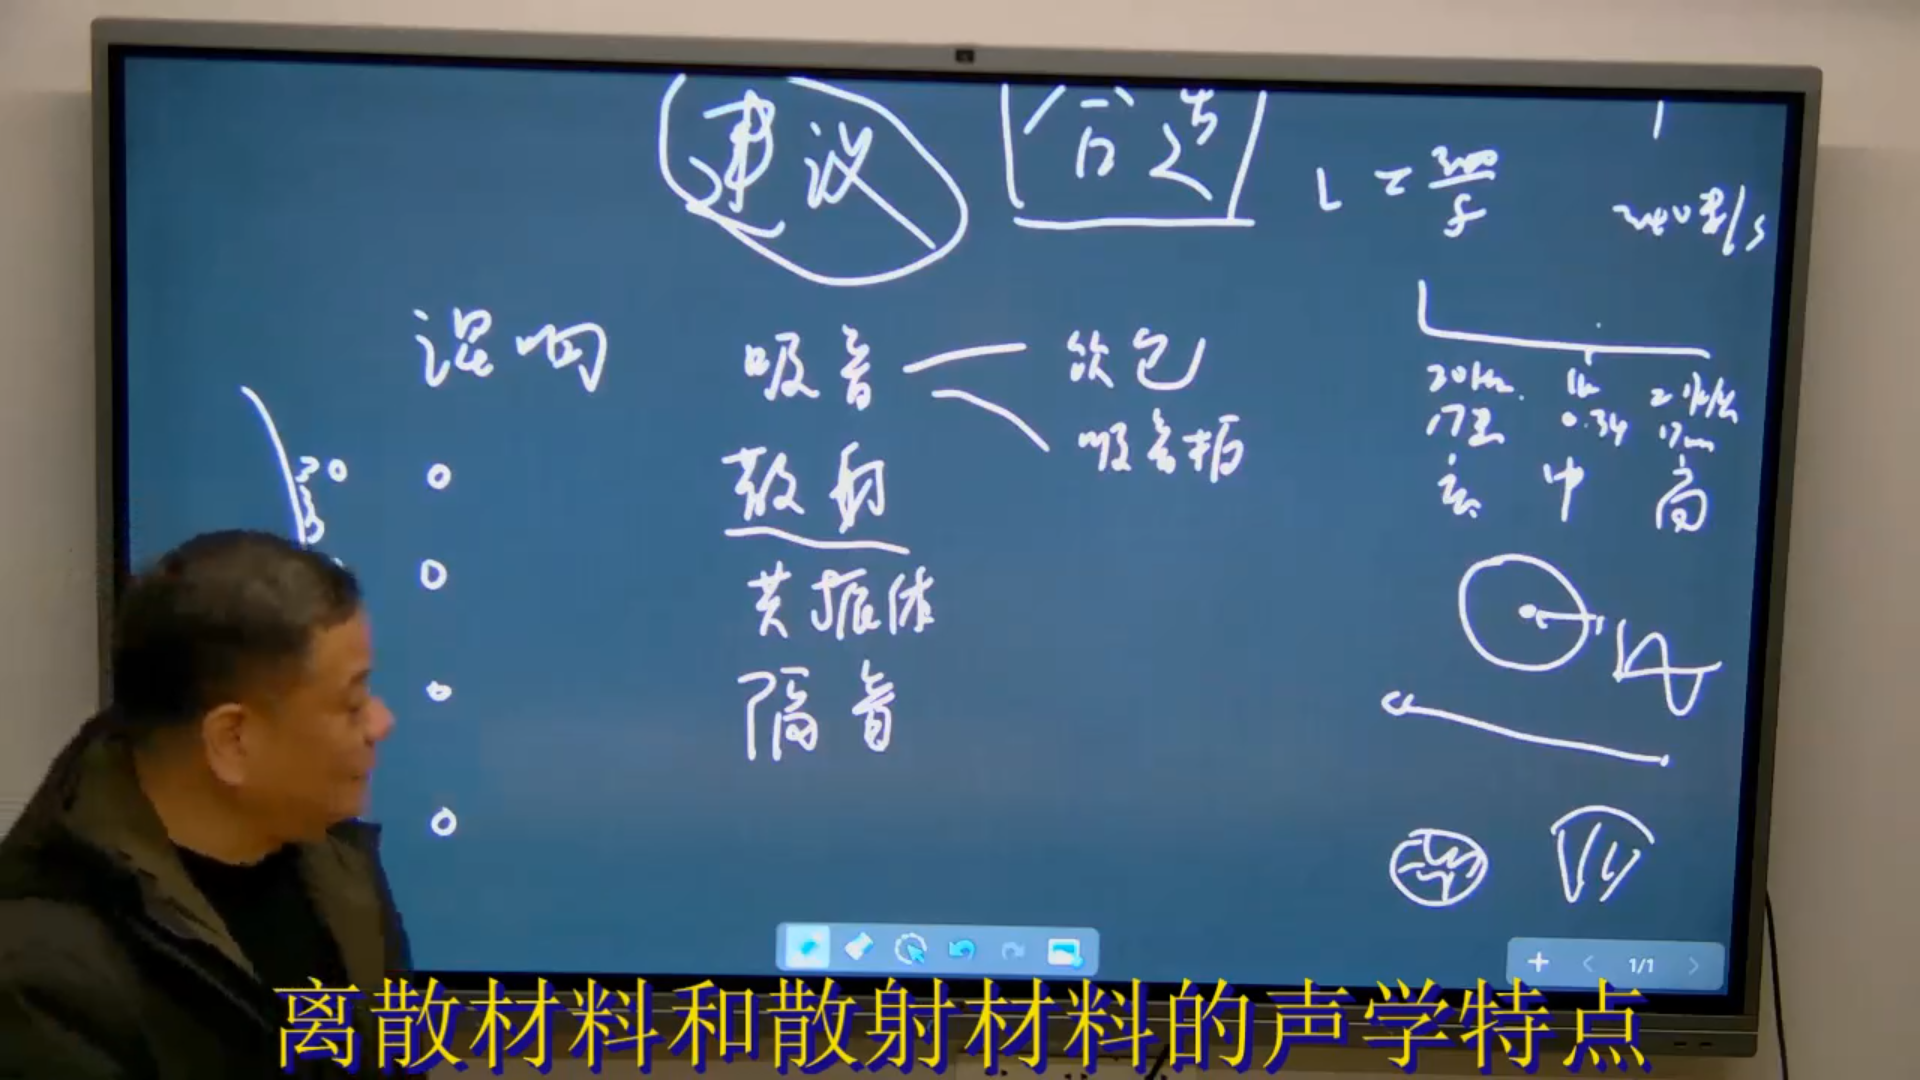 建议
340米/s
混响 吸音 软包
吸音板
20Hz 1k 20k/Hz
17米 0.34 17mm
散射
低 中 高
共振体
隔音
1/1
离散材料和散射材料的声学特点